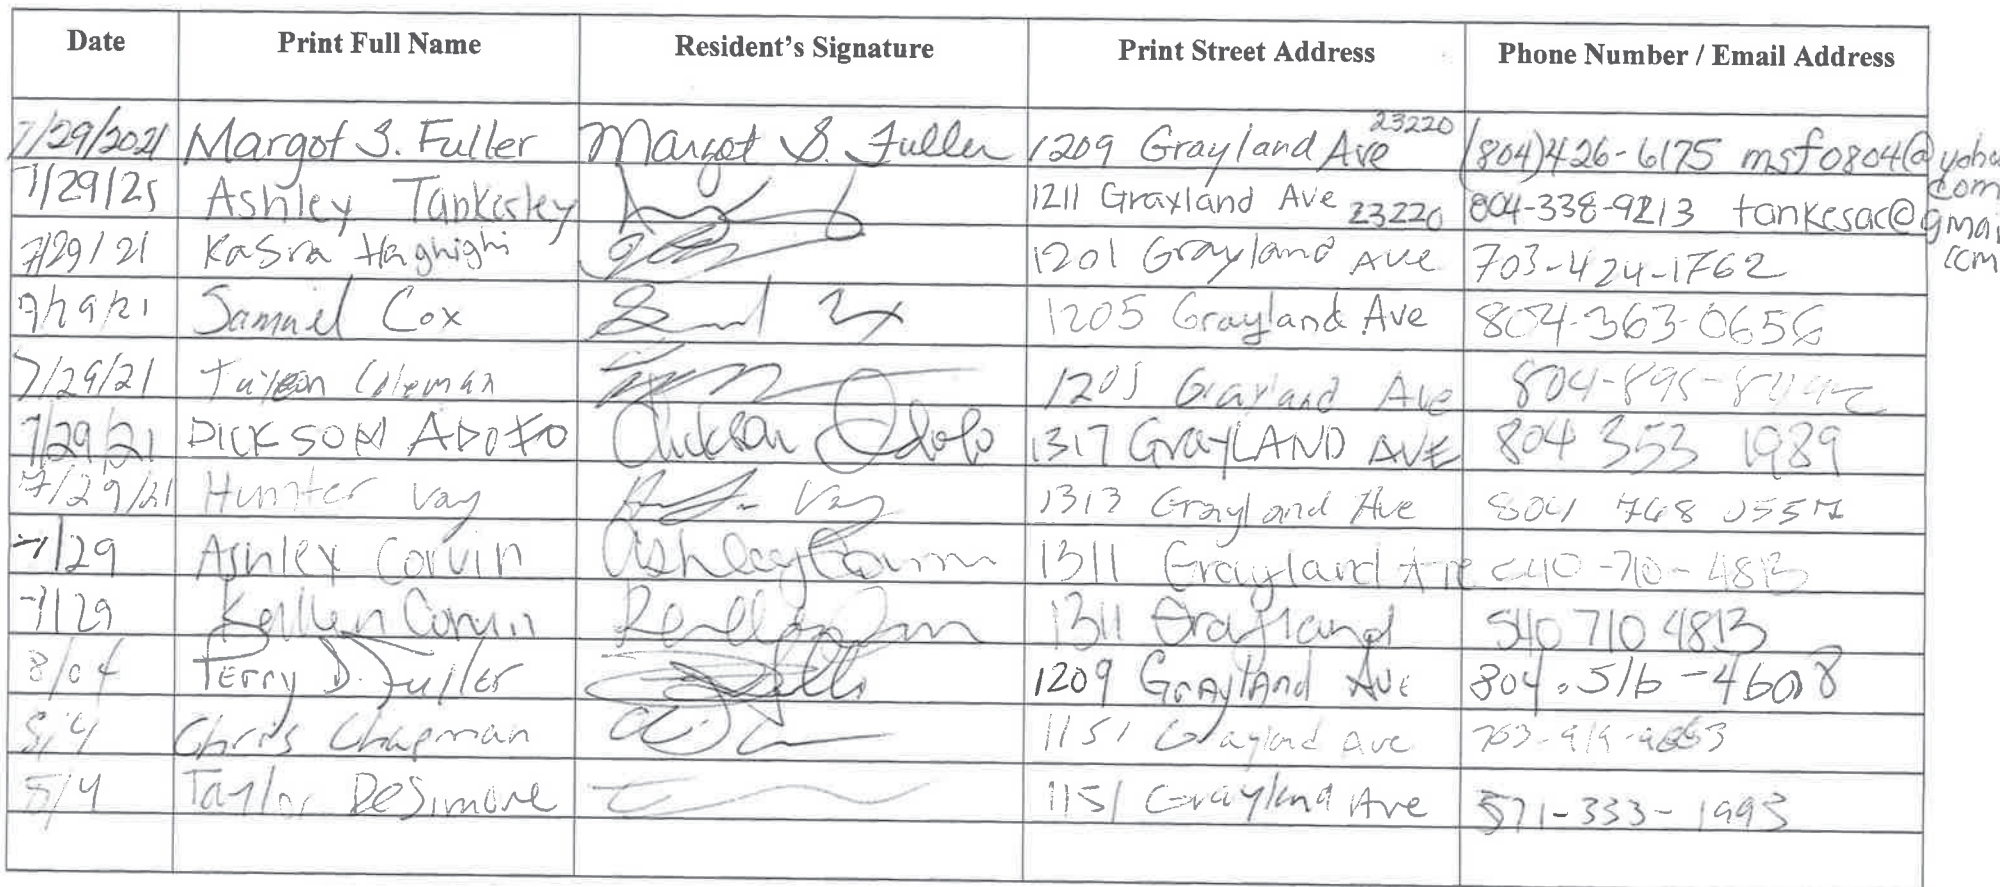 Date Print Full Name Resident's Signature Print Street Address Phone Number / Email Address
7/29/2021 Margot S. Fuller Margot S. Fuller 1209 Grayland Ave 23220 (804)426-6175 msf0804@yaho
com
7/29/25 Ashley Tankesley 1211 Grayland Ave 23220 804-338-9213 tankesac@gmai
com
7/29/21 Kasra Haghighi 1201 Grayland Ave 703-424-1762
7/29/21 Samuel Cox 1205 Grayland Ave 804-363-0656
7/29/21 Coleman 1205 Grayland Ave
7/29/21 DICKSON ADOFO Dickson Adofo 1317 GrayLAND AVE 804 353 1989
7/29/21 Hunter Vay 1313 Grayland Ave 804 768 0557
7/29 Ashley Corvin Ashley Corvin 1311 Grayland Ave 540-710-4813
7/29 Kellen Corvin 1311 Grayland 540 710 4813
8/04 Perry D. Fuller 1209 Grayland Ave 804.516-4608
8/4 Chris Chapman 1151 Grayland Ave
8/4 Taylor DeSimone 1151 Grayland Ave 571-333-1993